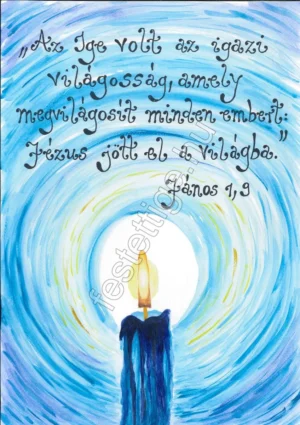 „Az Ige volt az igazi
világosság, amely
megvilágosít minden embert:
Jézus jött el a világba.”
János 1,9
festettige.hu